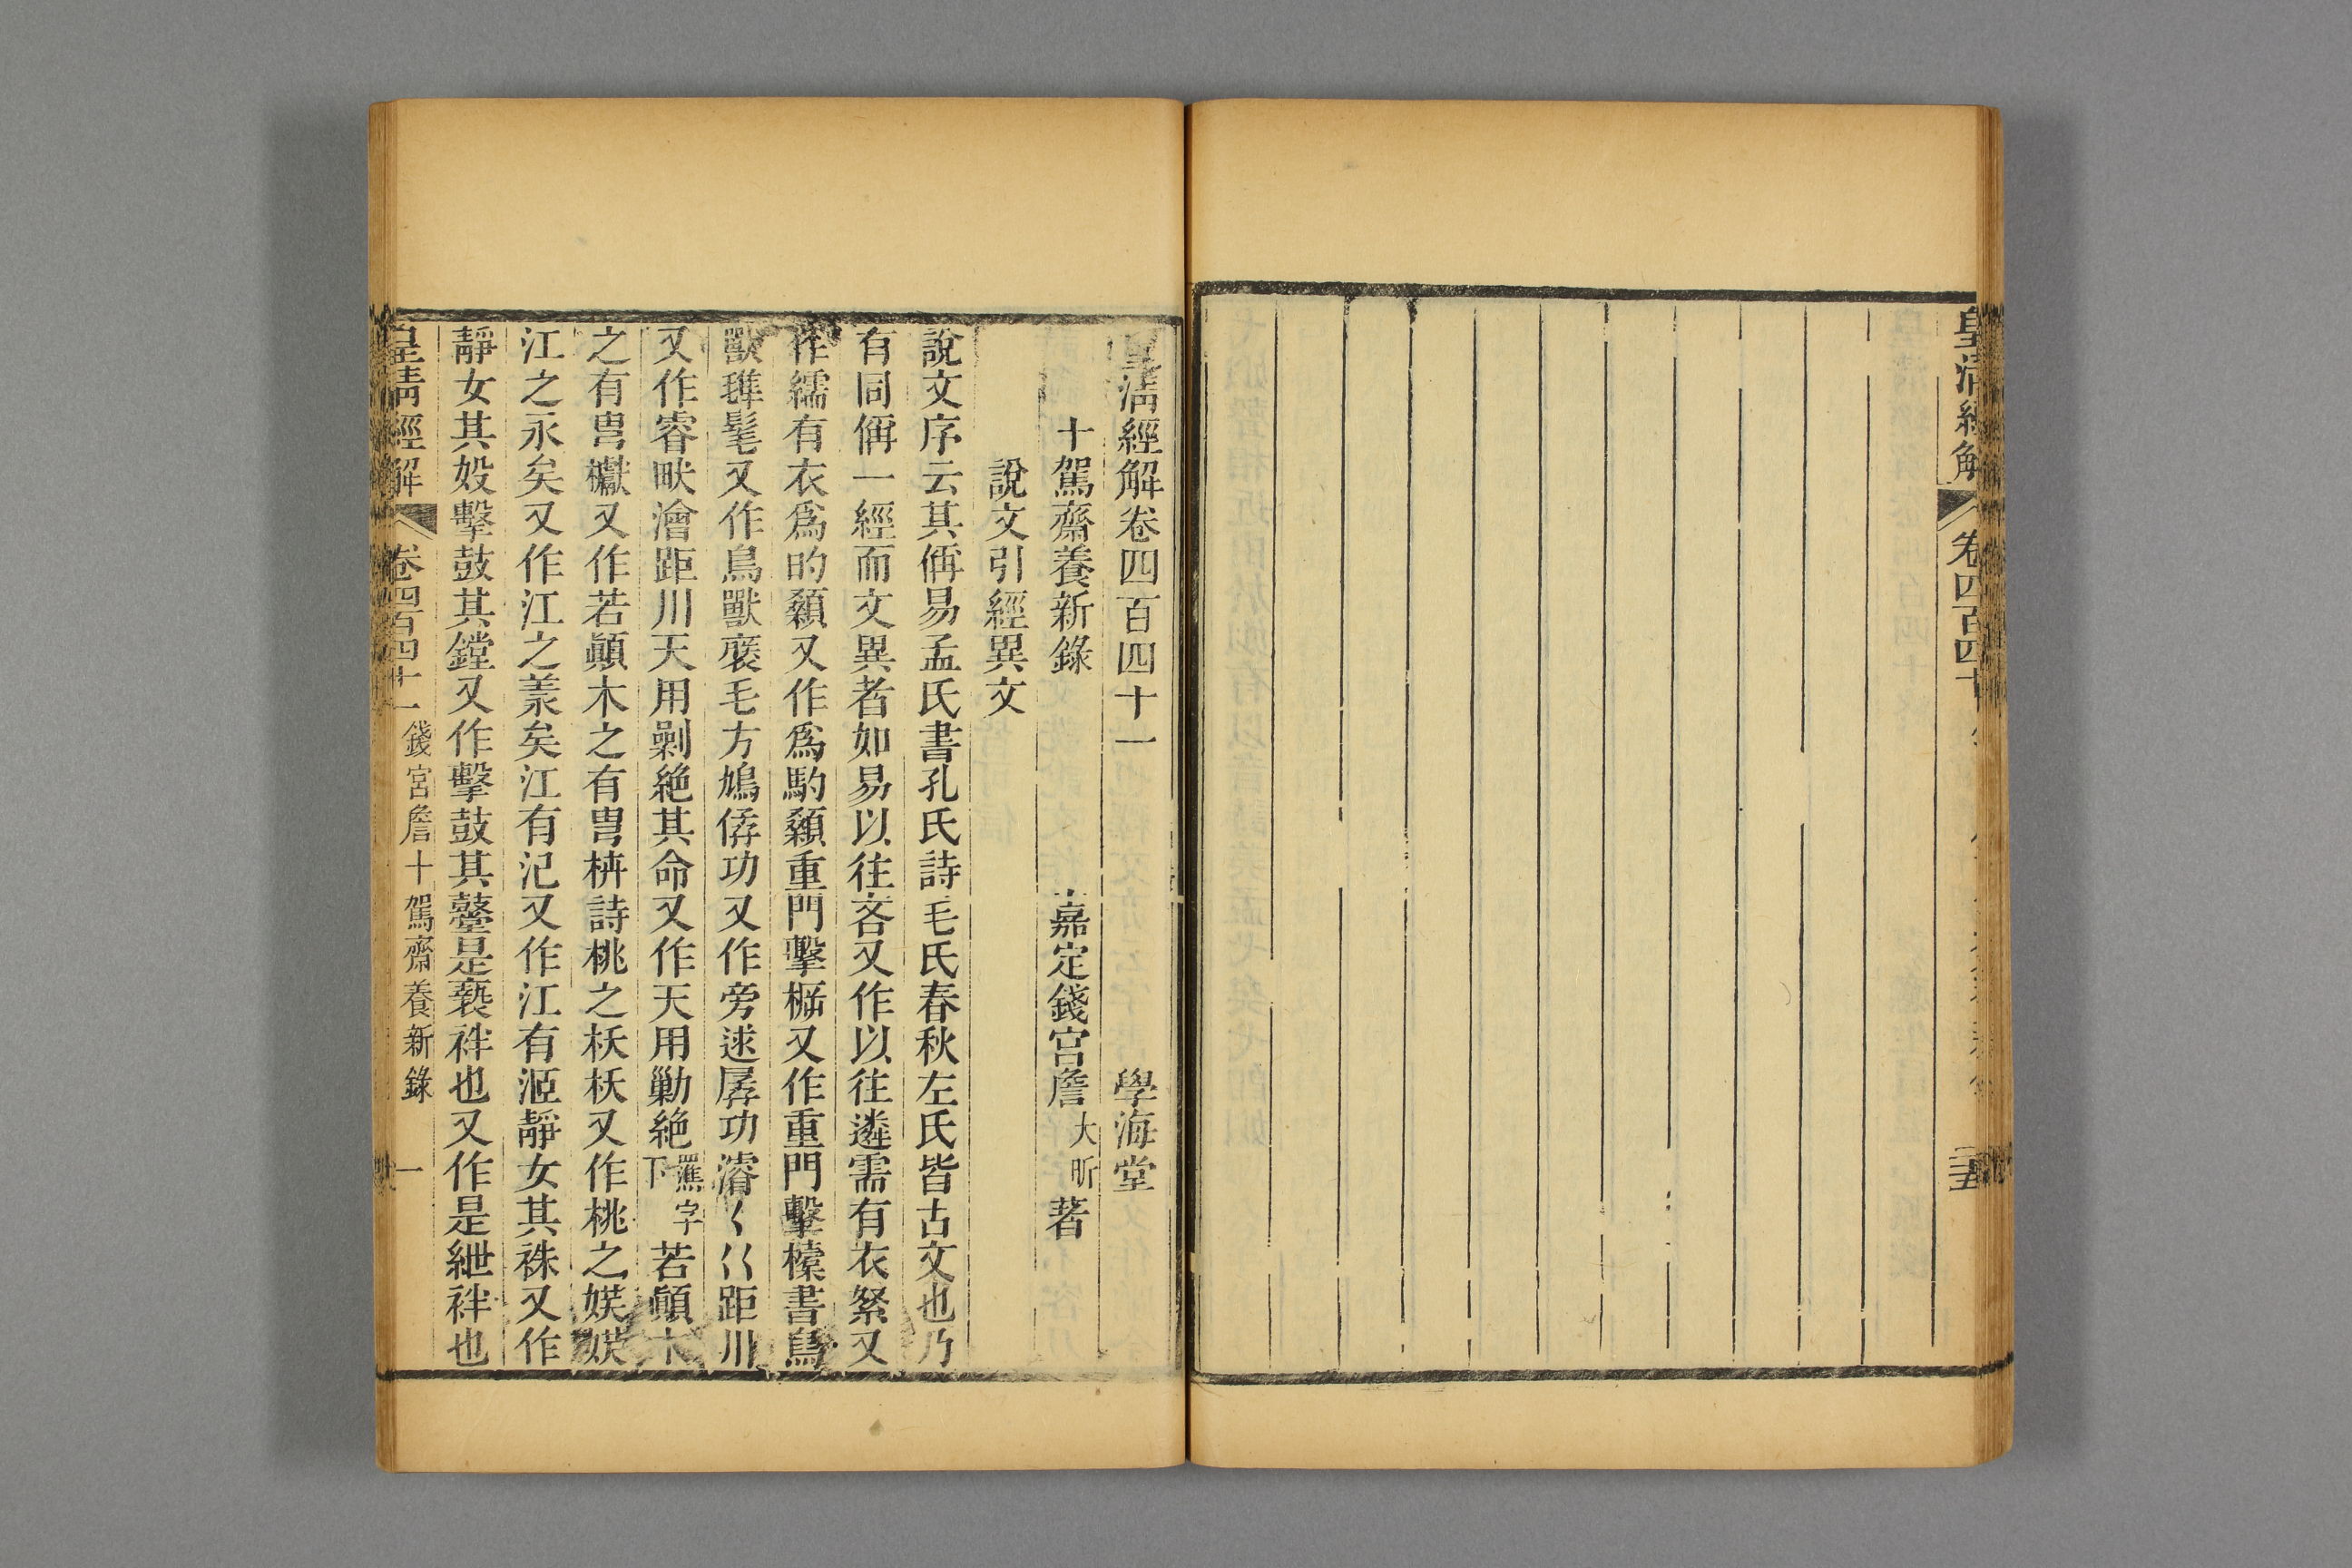 皇清經解
卷四百四十
皇清經解卷四百四十一
學海堂
十駕齋養新錄
嘉定錢宮詹大昕著
說文引經異文
說文序云其偁易孟氏書孔氏詩毛氏春秋左氏皆古文也乃
有同偁一經而文異者如易以往吝又作以往遴需有衣絮又
作繻有衣爲的顙又作爲馰顙重門擊㯓又作重門擊㯱書鳥
獸㲝髦又作鳥獸褎毛方鳩僝功又作旁逑孱功濬〈巜距川
又作睿畎澮距川天用剿絶其命又作天用勦絶䍜字下若顛木
之有㽕𣡌又作若顛木之有㽕枿詩桃之枖枖又作桃之媄媄
江之永矣又作江之羕矣江有汜又作江有洍靜女其袾又作
靜女其㚲擊鼓其鏜又作擊鼓其鼞是褻袢也又作是紲袢也
皇清經解
卷四百四十一
錢宮詹十駕齋養新錄
一